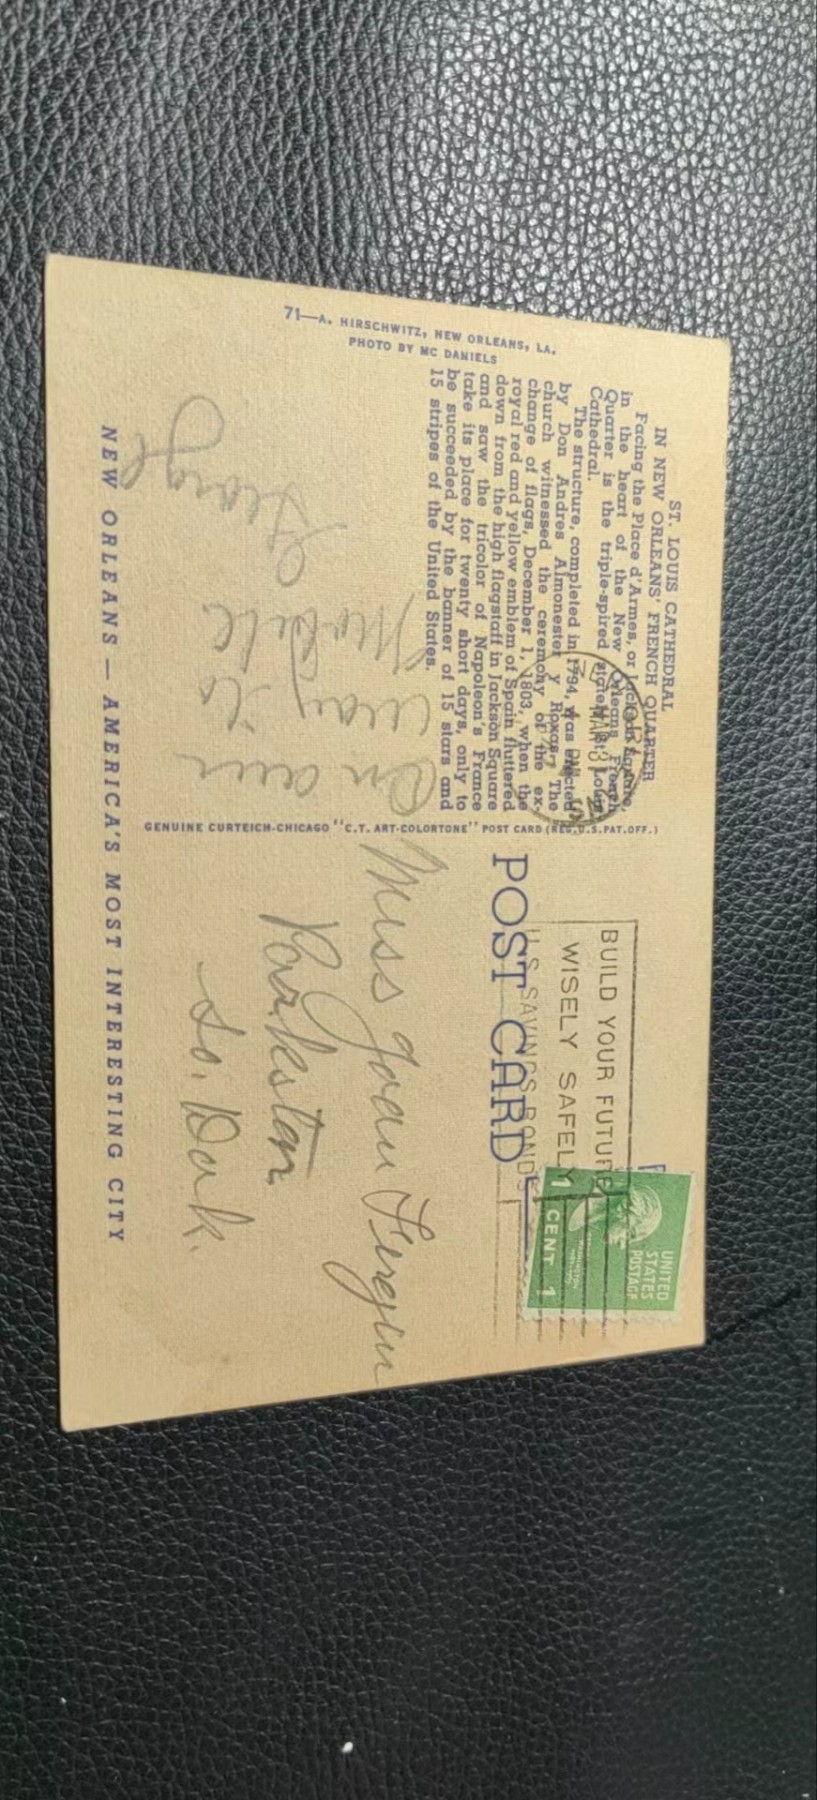 ST. LOUIS CATHEDRAL
IN NEW ORLEANS' FRENCH QUARTER
Facing the Place d'Armes, or Jackson Square,
in the heart of the New Orleans French
Quarter is the triple-spired stolen St. Louis
Cathedral.
The structure, completed in 1794, was erected
by Don Andres Almonester y Roxas. The
church witnessed the ceremony of the ex-
change of flags, December 1, 1803, when the
royal red and yellow emblem of Spain fluttered
down from the high flagstaff in Jackson Square
and saw the tricolor of Napoleon's France
take its place for twenty short days, only to
be succeeded by the banner of 15 stars and
15 stripes of the United States.
71—A. HIRSCHWITZ, NEW ORLEANS, LA.
PHOTO BY MC DANIELS
On our
way to
Mobile
George
GENUINE CURTEICH-CHICAGO "C.T. ART-COLORTONE" POST CARD (REG. U.S. PAT. OFF.)
MAR 31
BUILD YOUR FUTURE
WISELY SAFELY
U.S. SAVINGS BONDS
POST CARD
UNITED
STATES
POSTAGE
WASHINGTON
1 CENT 1
Miss Joan
Parkston
So. Dak.
NEW ORLEANS — AMERICA'S MOST INTERESTING CITY